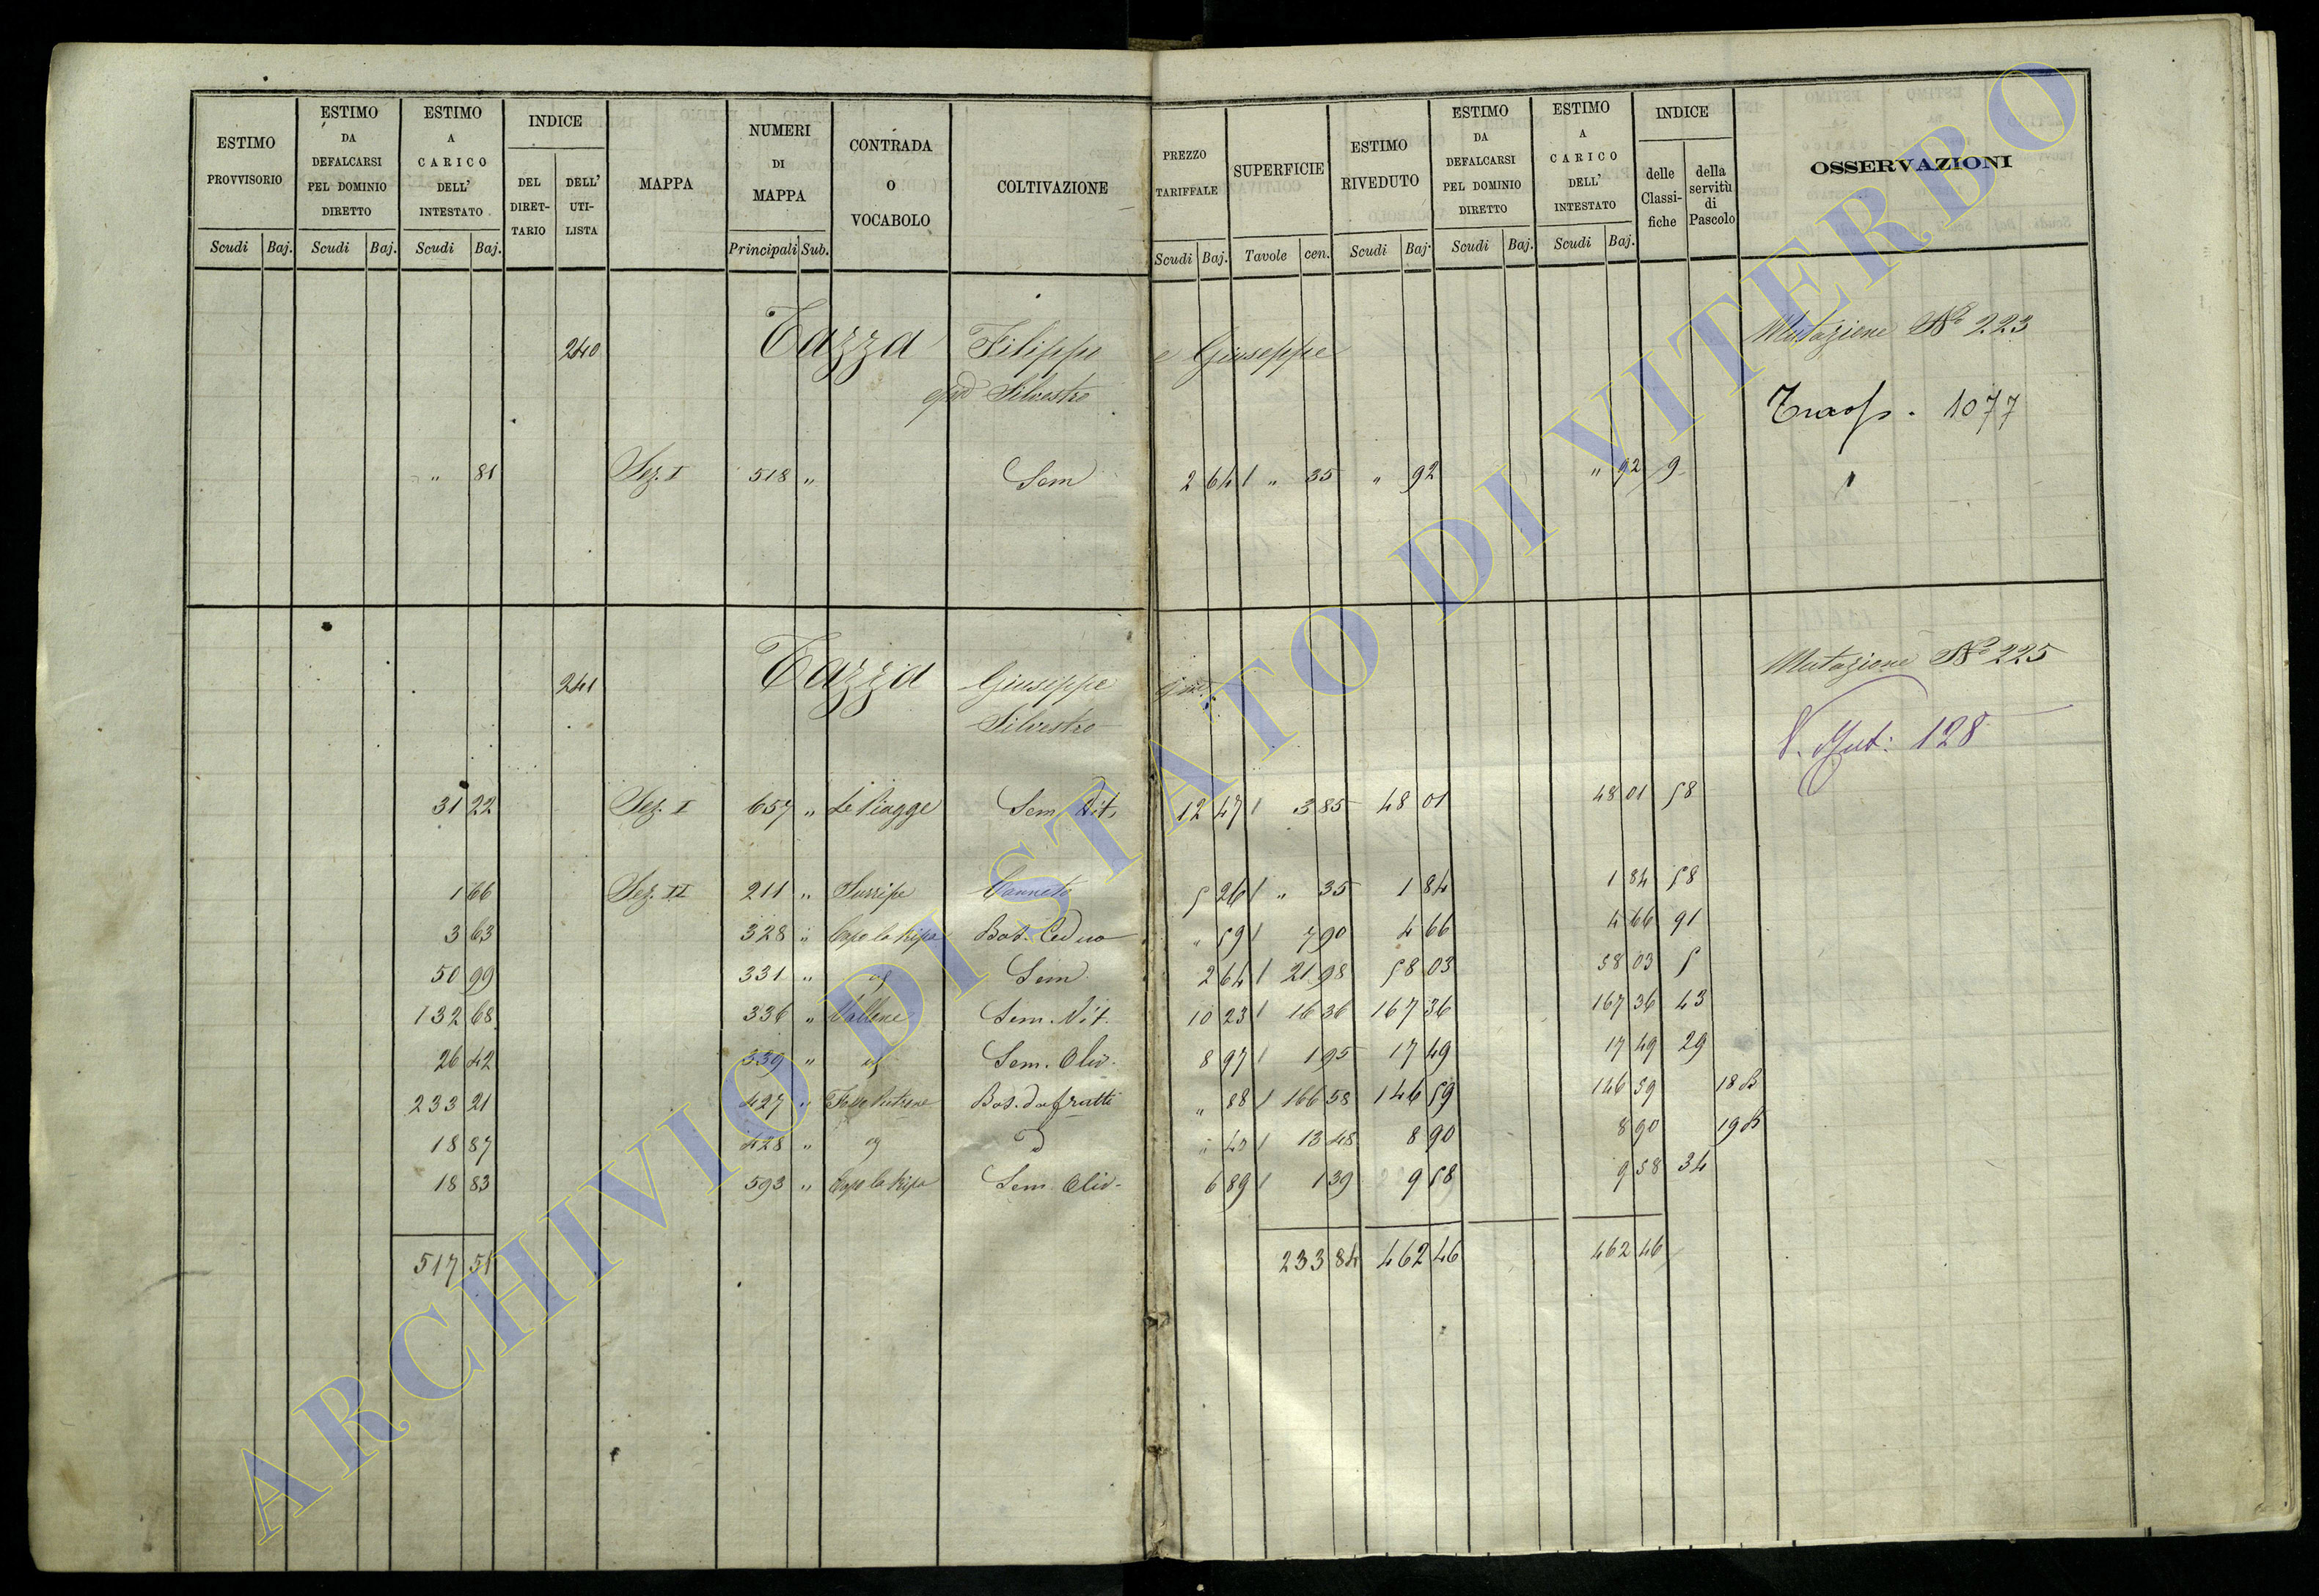 ESTIMO PROVVISORIO
ESTIMO DA DEFALCARSI PEL DOMINIO DIRETTO
ESTIMO A CARICO DELL' INTESTATO
INDICE
DEL DIRET-TARIO
DELL' UTI-LISTA
MAPPA
NUMERI DI MAPPA
CONTRADA O VOCABOLO
COLTIVAZIONE
PREZZO TARIFFALE
SUPERFICIE
ESTIMO RIVEDUTO
ESTIMO DA DEFALCARSI PEL DOMINIO DIRETTO
ESTIMO A CARICO DELL' INTESTATO
INDICE
delle Classi-fiche
della servitù di Pascolo
OSSERVAZIONI
Scudi Baj. Scudi Baj. Scudi Baj. Principali Sub. Scudi Baj. Tavole cen. Scudi Baj. Scudi Baj. Scudi Baj.
240 Tazza Filippo e Giuseppe Mutazione No 223
Silvestro 1077
" 81 Sez. I 518 " Sem 2 64 " 35 " 92 " 92 9
241 Tazza Giuseppe Mutazione No 225
Silvestro V. Mut: 128
31 22 Sez. I 657 " Le Piagge Sem Vit. 12 47 3 85 48 01 48 01 58
1 66 Sez. II 211 " Surripe Canneto 5 26 " 35 1 84 1 84 58
3 63 328 " Capo la Ripa Bos. Ceduo " 59 7 90 4 66 4 66 91
50 99 331 " Sem 2 64 21 98 58 03 58 03 5
132 68 336 " Vallone Sem. Vit. 10 23 16 36 167 36 167 36 43
26 42 339 " Sem. Oliv. 8 97 1 95 17 49 17 49 29
233 21 427 " Bos. da frutti " 88 166 58 146 59 146 59 18 B
18 87 428 " " 13 48 8 90 8 90 19 B
18 83 593 " Capo la Ripa Sem. Oliv. 6 89 1 39 9 58 9 58 34
517 51 233 84 462 46 462 46
ARCHIVIO DI STATO DI VITERBO